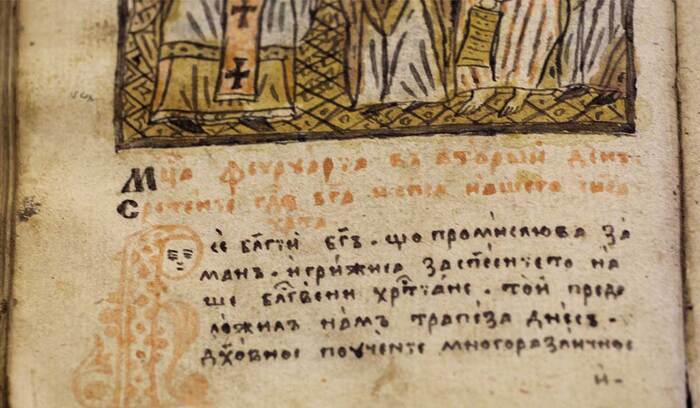 Мц҃а феуруарїа въ вторый день
Сретенїе гд҃а бг҃а и спса нашего
хр҃та
се бл҃гїи бг҃ъ · що промислюва за
манъ · и грижиса за сп҃сенїето на
ше бл҃гвени хрт҃їане · той пред
ложилъ намъ трапеза днесъ ·
дх҃овное поученїе многоразличное
и-